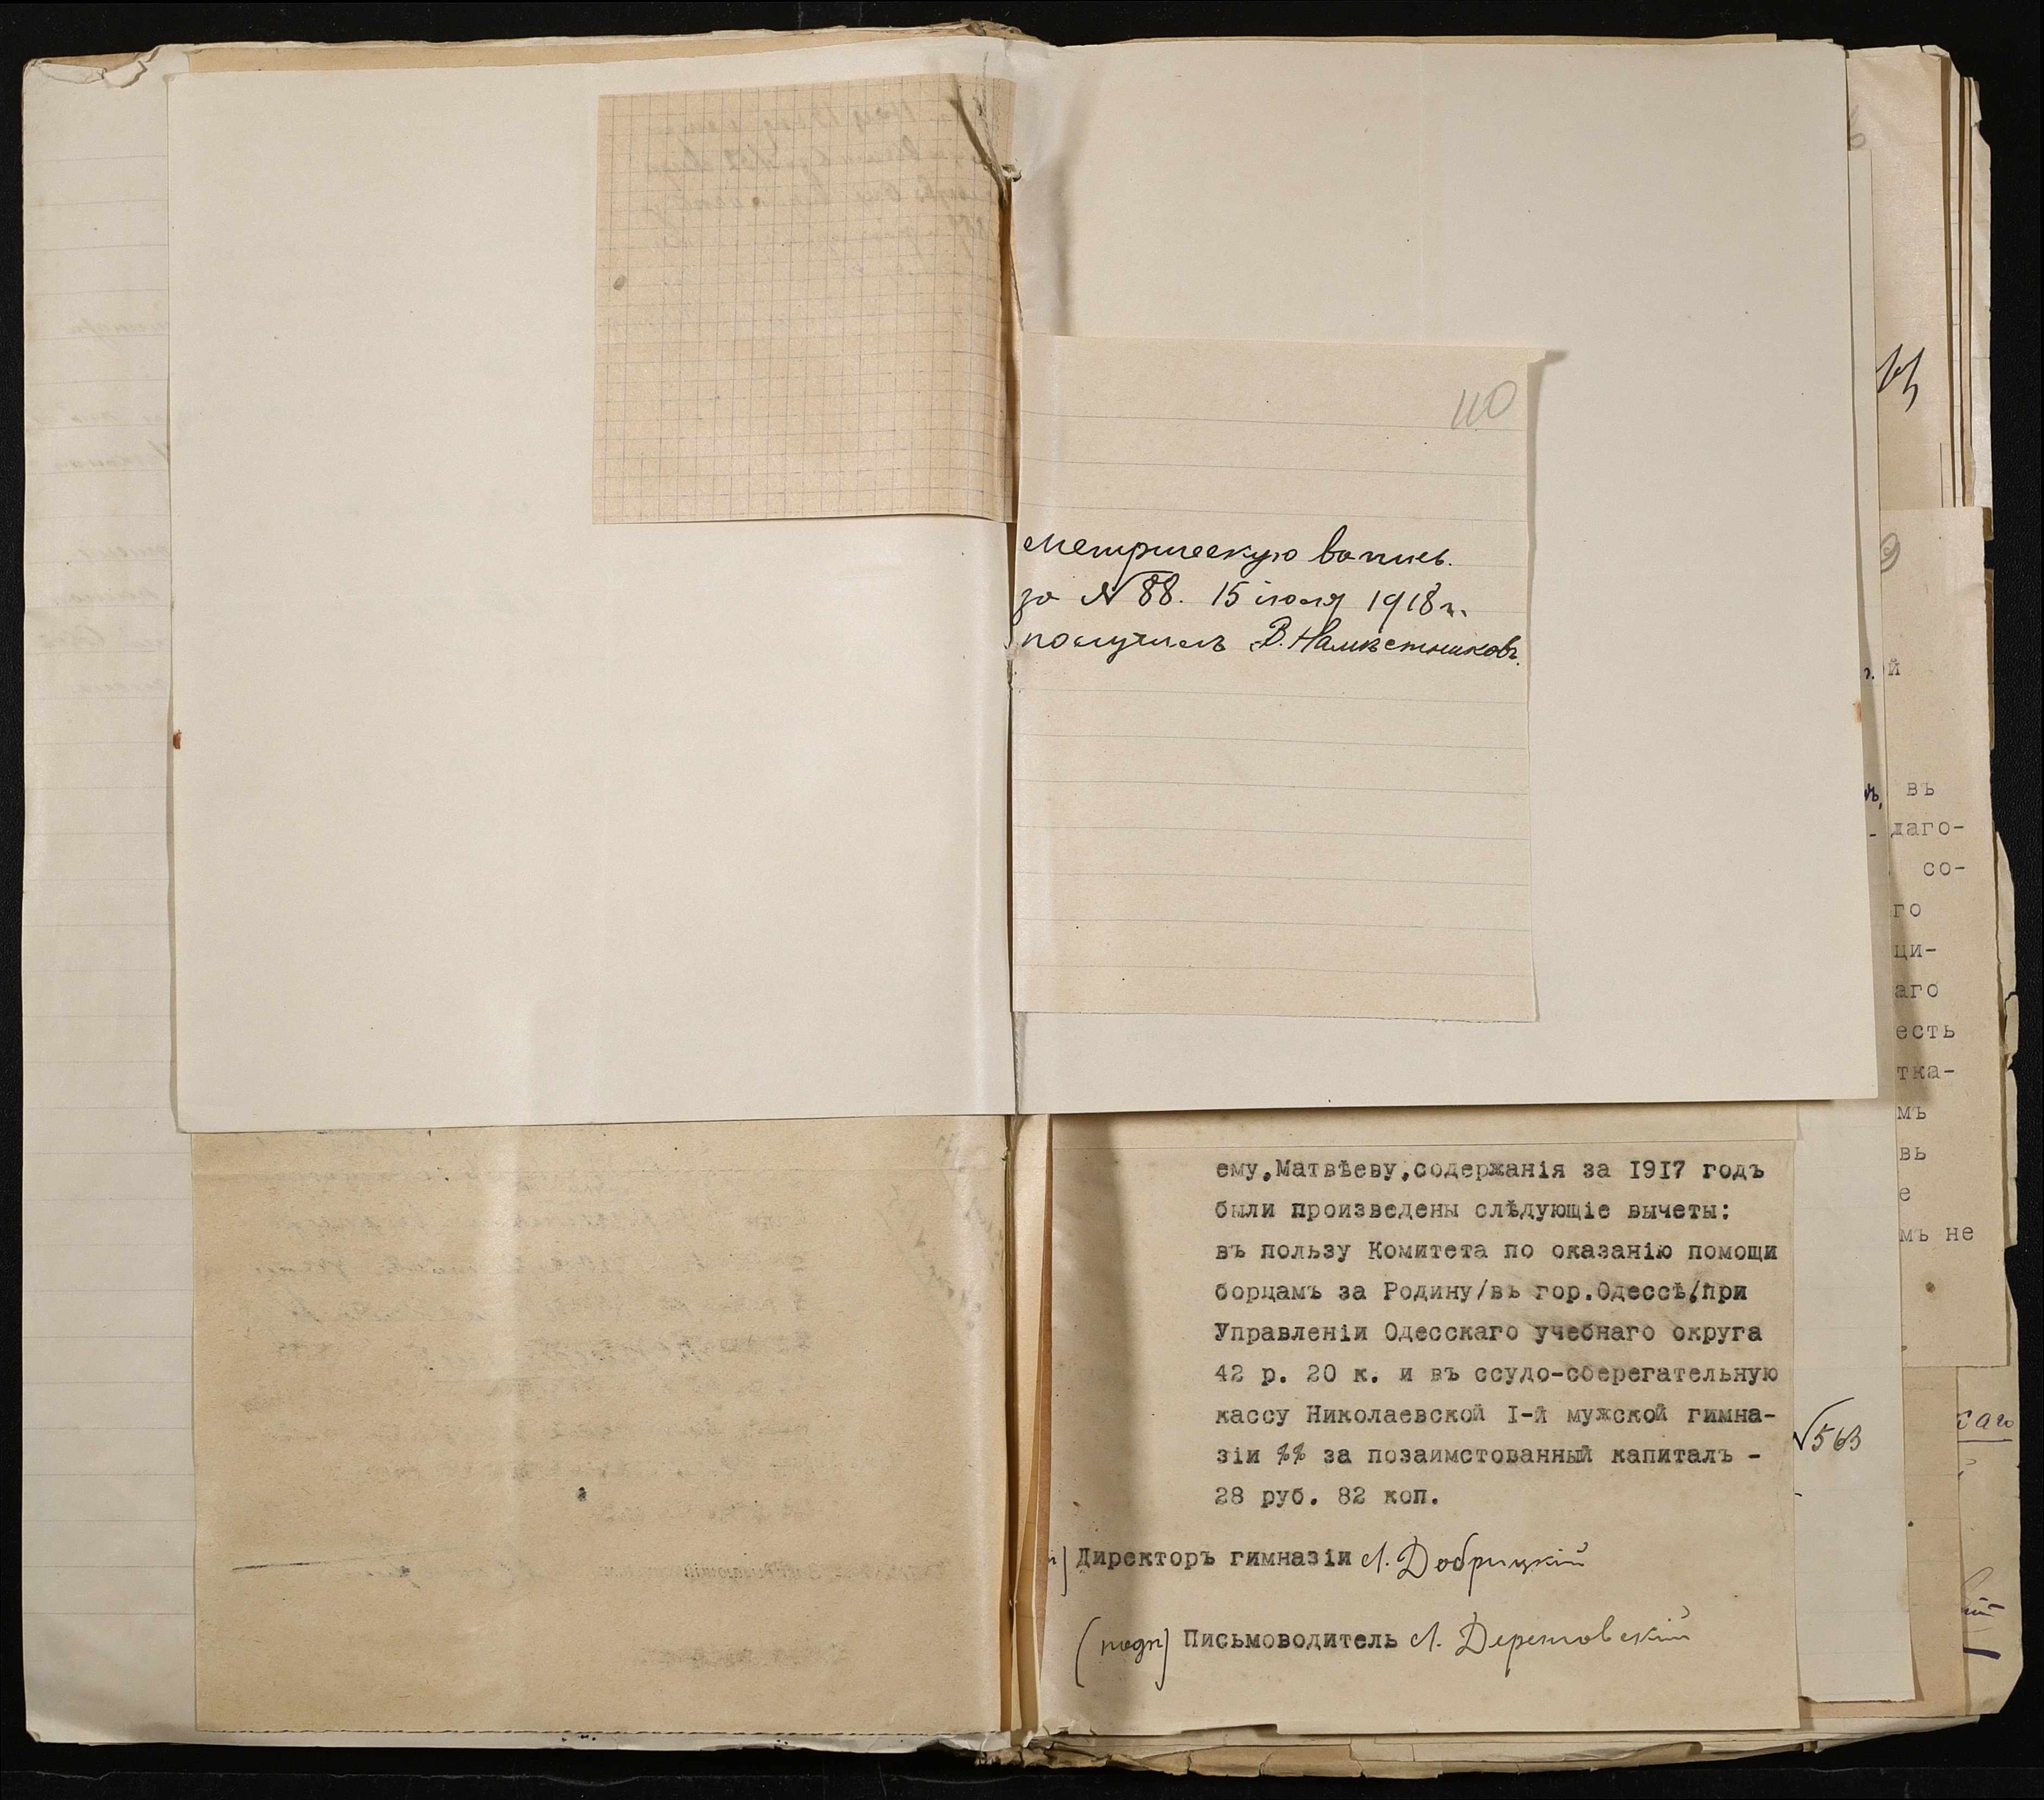 110
Метрическую вопись.
за № 88. 15 іюля 1918 г.
получилъ В. Намѣстниковъ.
ему,Матвѣеву,содержанія за 1917 годъ
были произведены слѣдующіе вычеты:
въ пользу Комитета по оказанію помощи
борцамъ за Родину/въ гор.Одессѣ/при
Управленіи Одесскаго учебнаго округа
42 р. 20 к. и въ ссудо-сберегательную
кассу Николаевской I-й мужской гимна-
зіи %% за позаимстованный капиталъ -
28 руб. 82 коп.
Директоръ гимназіи А. Добрицкій
(подп) Письмоводитель А.
й
въ
даго-
со-
го
ци-
аго
есть
тка-
мъ
вь
е
мъ не
№563